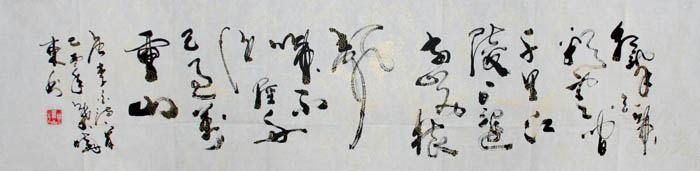 朝辭白帝
彩雲間
千里江
陵一日還
兩岸猿
聲
啼不
住
輕舟
已過萬
重山
唐李白詩